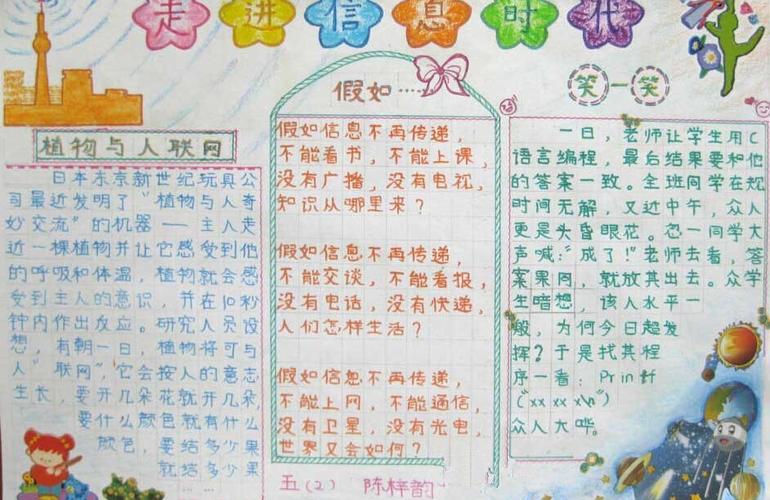 走进信息时代
植物与人联网
日本东京新世纪玩具公
司最近发明了“植物与人奇
妙交流”的机器——主人走
近一棵植物并让它感受到他
的呼吸和体温，植物就会感
受到主人的意识，并在10秒
钟内作出反应。研究人员设
想，有朝一日，植物将可与
人“联网”，它会按人的意志
生长，要开几朵花就开几朵
要什么颜色就有什么
颜色，要结多少果
就结多少果
……
假如……
假如信息不再传递，
不能看书，不能上课，
没有广播，没有电视，
知识从哪里来？
假如信息不再传递，
不能交谈，不能看报，
没有电话，没有快递，
人们怎样生活？
假如信息不再传递，
不能上网，不能通信，
没有卫星，没有光电，
世界又会如何？
五（2） 陈梓韵
笑一笑
一日，老师让学生用C
语言编程，最后结果要和他
的答案一致。全班同学在规
时间无解，又过中午，众人
更是头昏眼花。忽一同学大
声喊：“成了！”老师去看，答
案果同，就放其出去。众学
生暗想，该人水平一
般，为何今日超发
挥？于是找其程
序一看：Printf
（“xx xx x\n”）
众人大哗。